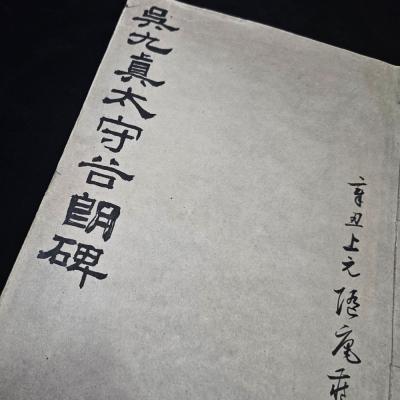 吳九真太守谷朗碑
辛丑上元隨庵